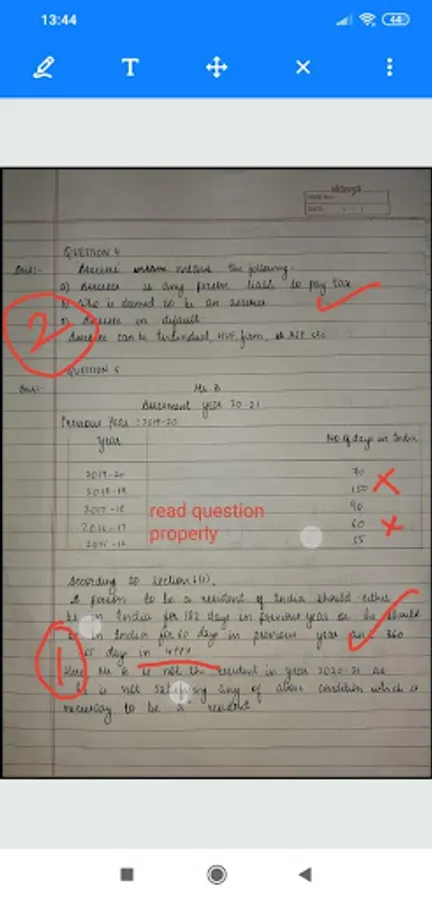 13:44
44
T
QUESTION 4
Ans:- Assessee means the following.
a) Assessee is any person liable to pay tax
b) Who is deemed to be an assessee
c) Assessee in default
2
Assessee can be Individual, HUF, firm, AOP etc
QUESTION 5
Ans:- Mr. B
Assessment year 20-21
Previous Year : 2019-20
Year No of days in India
2019-20 70
2018-19 150
2017-18 90
2016-17 60
55
read question
properly
According to section 6(1).
A person to be a resident of India should either
be in India for 182 days in previous year or he should
be in India for 60 days in previous year and 360
days in 4PPY
1
Mr B is not the resident in year 2020-21 as
he is not satisfying any of above condition which is
necessary to be a resident